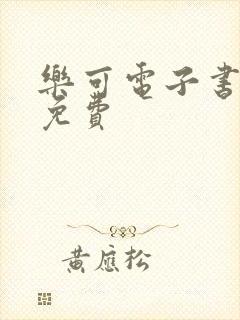 樂可電子書
免費
黃應松